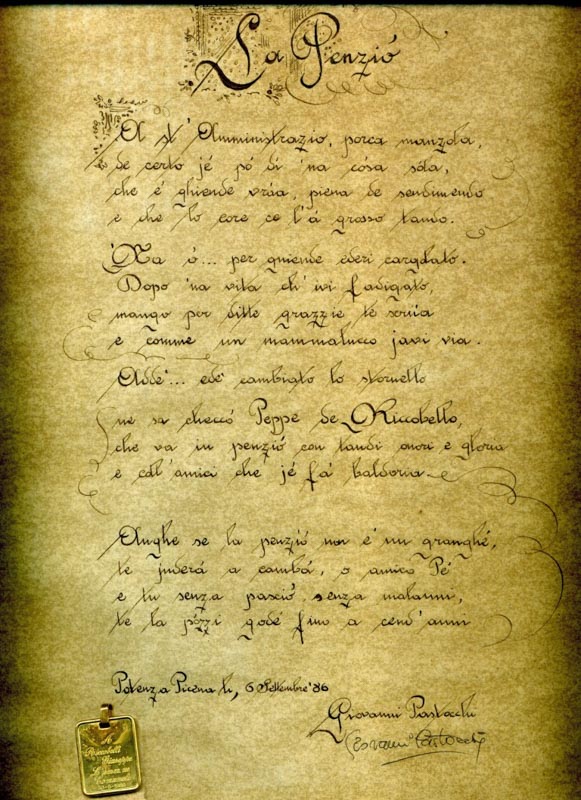 La Penzió
A st' Amministrazio, porca manzola,
de certo jé pò di 'na cosa sola,
che è ghiende vráa, piena de sendimendo
e che lo core ce l'á grosso tando.
Ma o'... per gniende ederi cargolato.
Dopo 'na vita ch' ivi fadigato,
mango per ditte grazzie te
e comme un mammalucco javi via.
Adde'... ede' cambiato lo stornello
ne sa checcó Peppe de Riccobello,
che va in penzió con tandi onori e gloria
e coll' amici che jé fá baldoria
Anghe se la penzió non é un granghé,
te juderá a cambá, o amico Pé
e tu senza pascio', senza malanni,
te la pòzzi godé fino a cend'anni
Potenza Picena li, 6 Settembre '86
Giovanni Pastocchi
Giovanni Pastocchi
A
Giuseppe